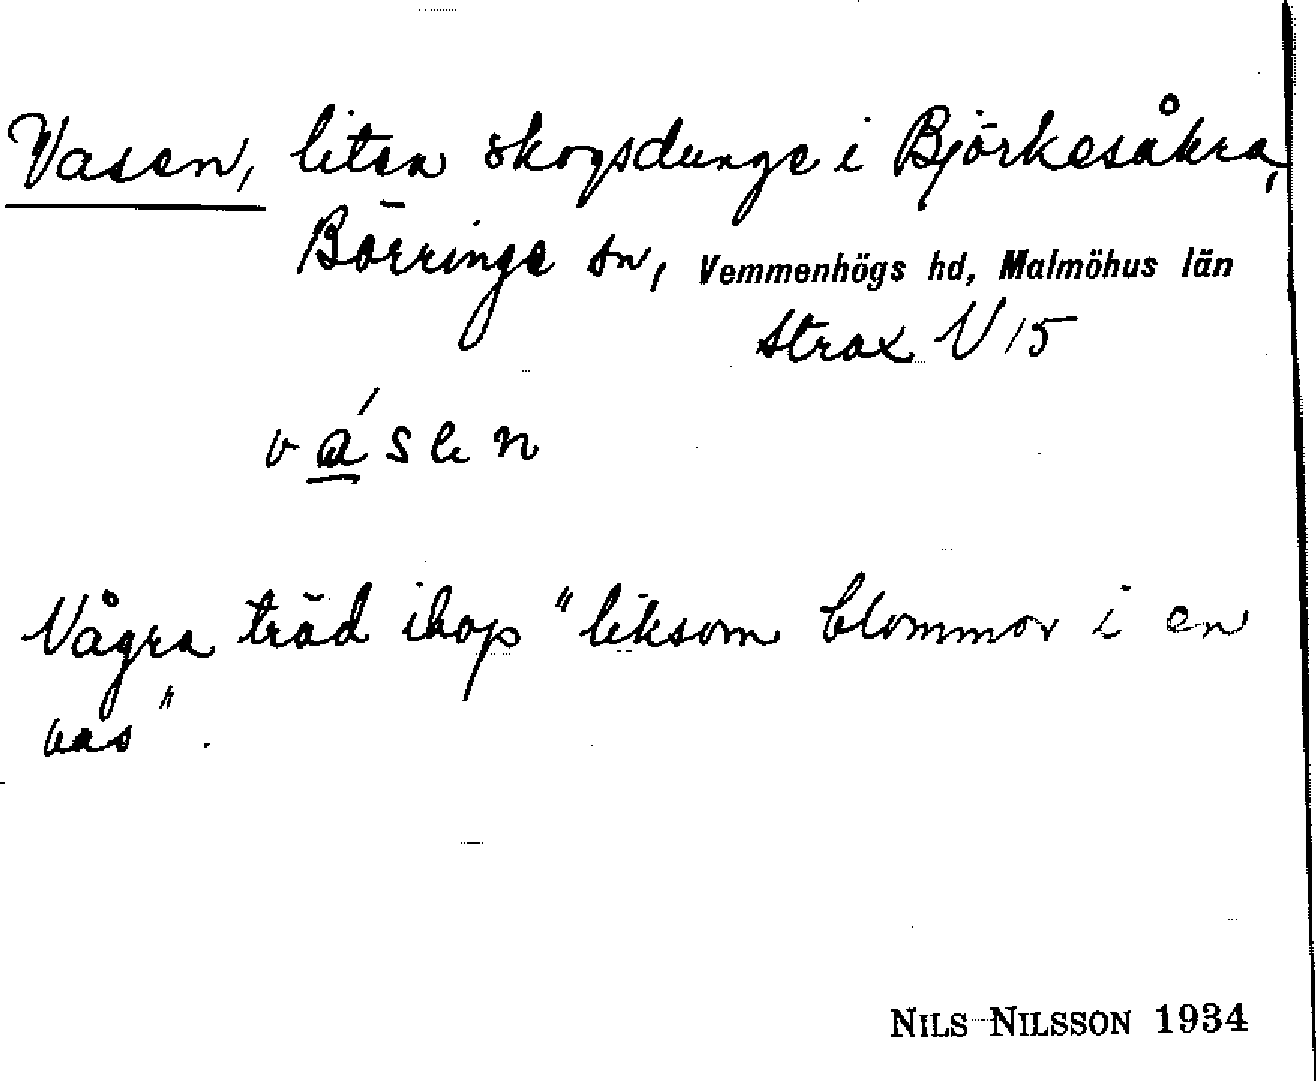 Vasen, liten skogsdunge i Björkesåkra,
Börringe sn, Vemmenhögs hd, Malmöhus län
strax V 15
vásen
Några träd ihop "liksom blommor i en
vas".
NILS NILSSON 1934